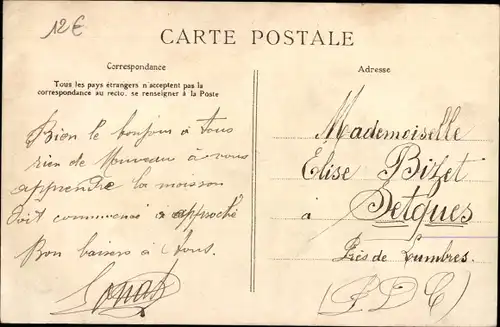 12€
CARTE POSTALE
Correspondance
Tous les pays étrangers n'acceptent pas la
correspondance au recto. se renseigner à la Poste
Bien le bonjour à tous
rien de Nouveau à vous
apprendre la moisson
doit commencé à approché
Bon baisers à tous.
Adresse
Mademoiselle
Elise Bizet
à Setques
Près de Lumbres.
(P D C)